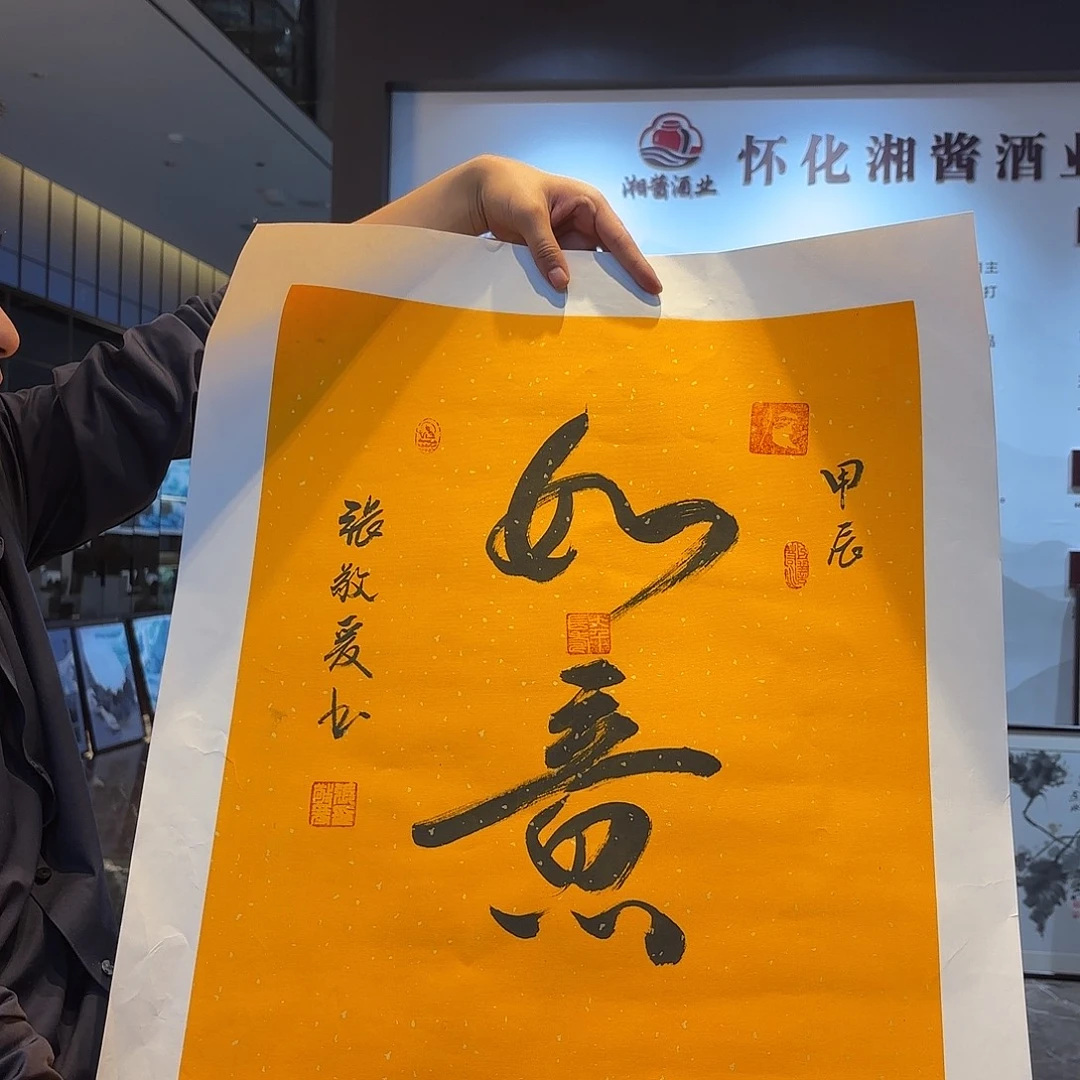 湘酱酒业
怀化湘酱酒业
主
打
如意
甲辰
张敬爱书